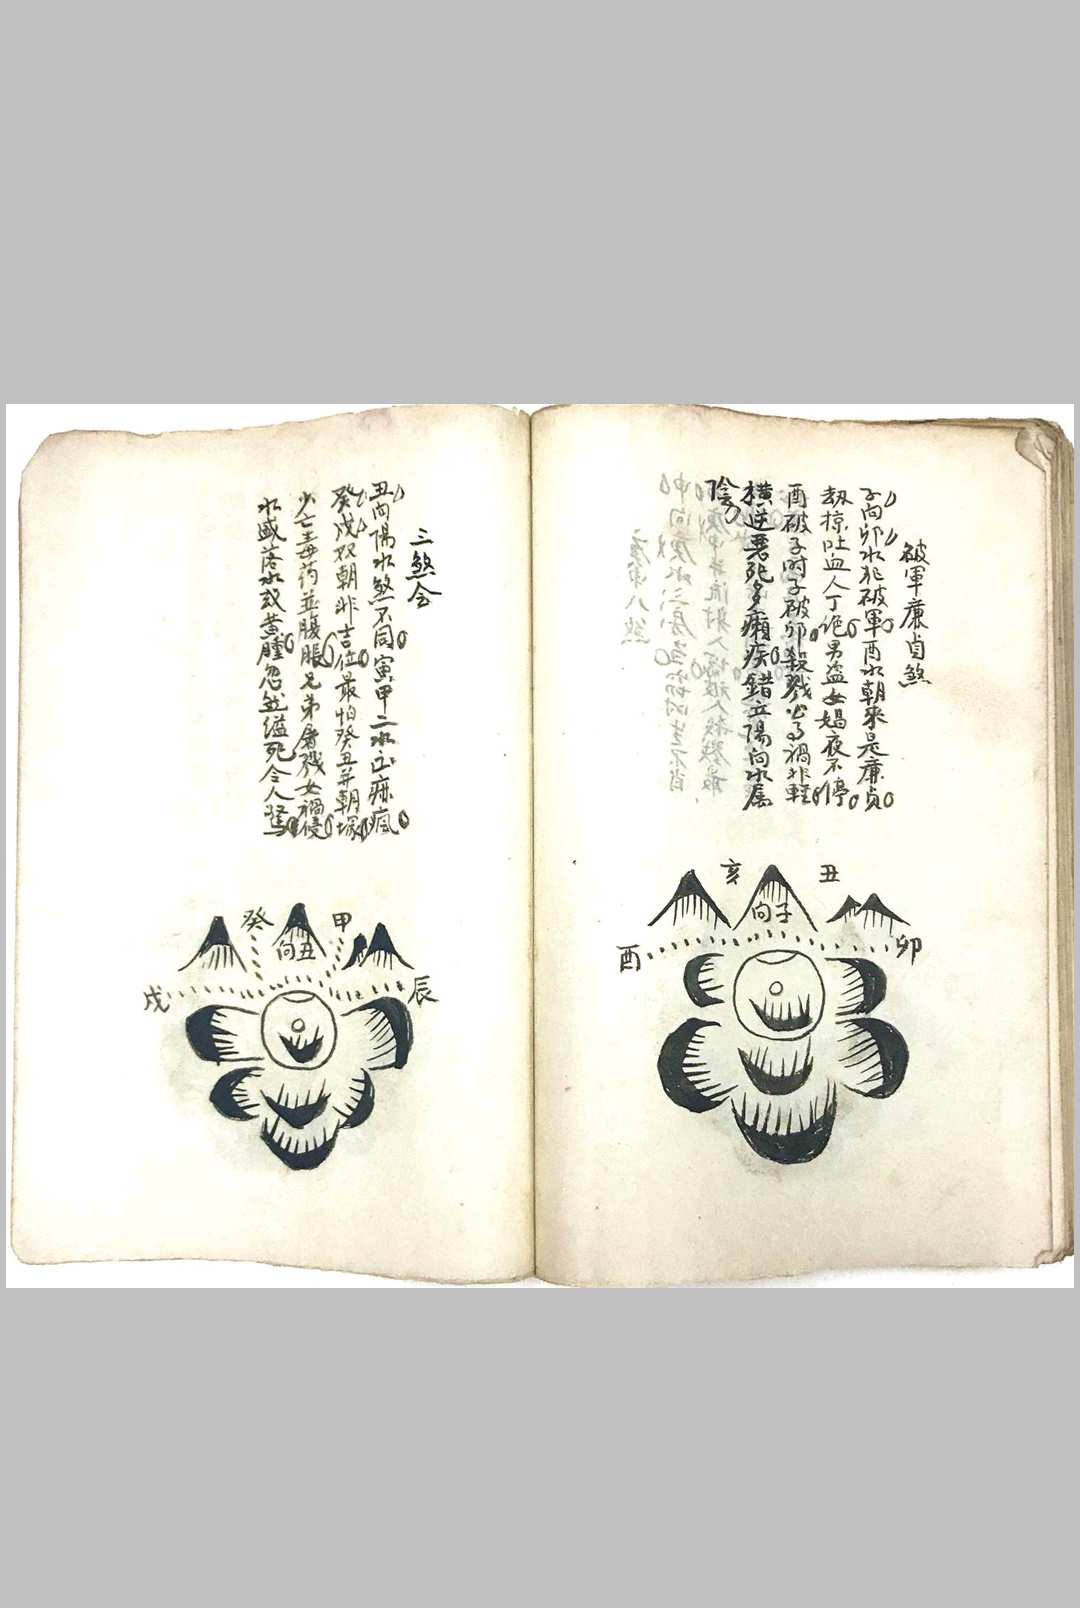 破軍廉貞煞
子向卯水犯破軍酉水朝來是廉貞
劫掠吐血人丁絕男盜女娼夜不停
酉破子时子破卯殺戮公事禍非輕
橫逆惡死多癩疾錯立陽向水屬
陰
亥 丑
向子
酉 卯
三煞会
丑向陽水煞不同寅甲二水出痳瘋
癸戌双朝非吉位最怕癸丑并朝塚
少亡毒药並腹脹兄弟屠戮女禍侵
水盛落水或黄腫忽然縊死令人驚
癸 甲
向丑
戌 辰